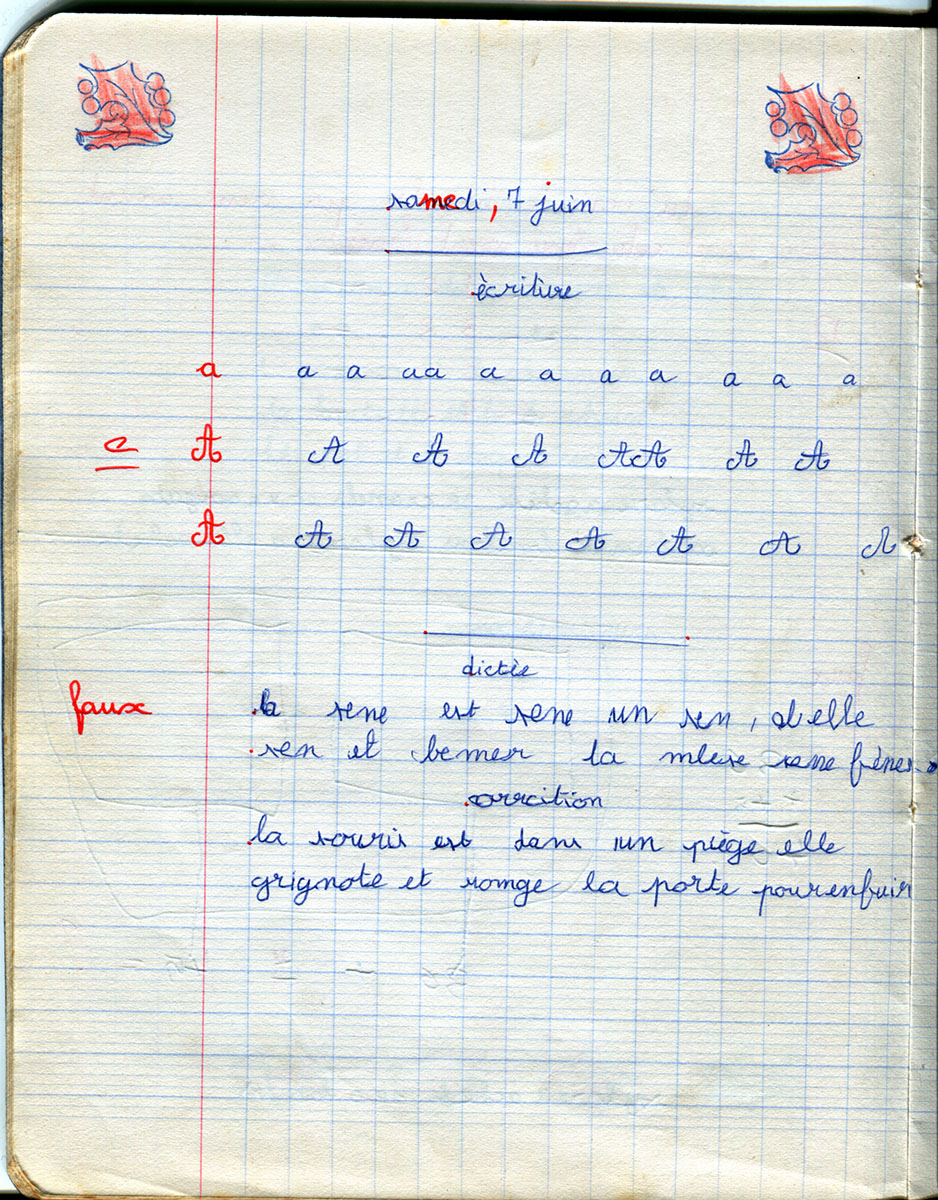 samedi, 7 juin
ècriture
a a a a a a a a a a a
c A A A A A A A A
A A A A A A A A
dictèe
faux la rene est rene un ren, d elle
ren et bemer la
correction
la souris est dans un piège elle
grignote et romge la porte pour enfuir